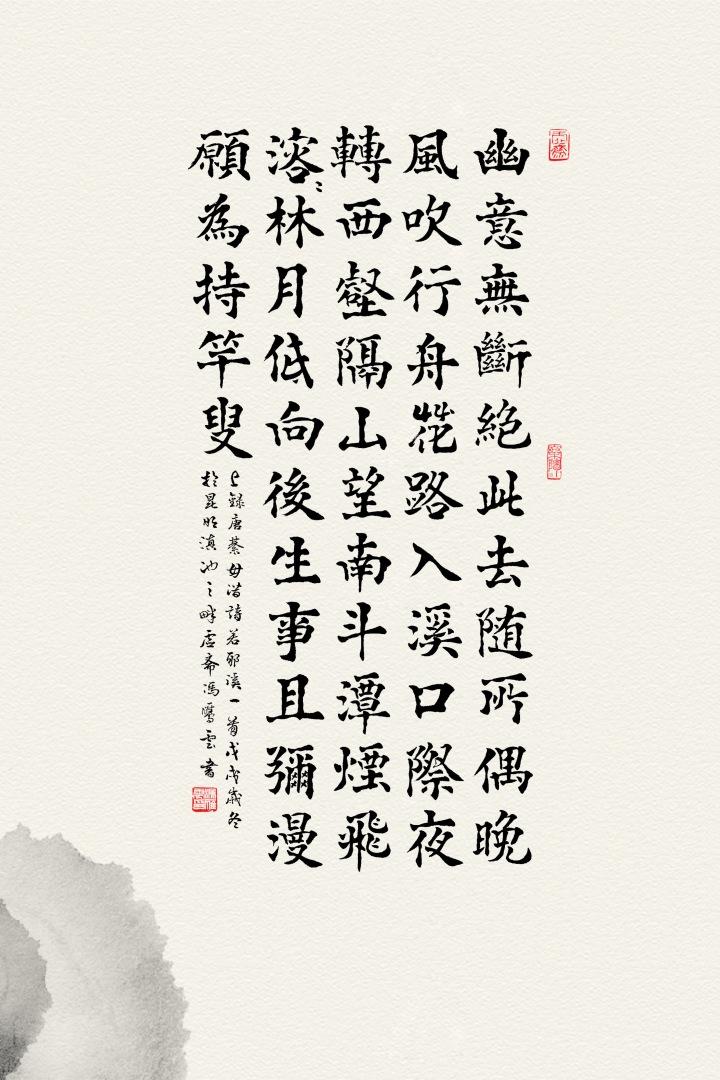 幽意無斷絶此去随所偶晚
風吹行舟花路入溪口際夜
轉西壑隔山望南斗潭煙飛
溶〻林月低向後生事且彌漫
願為持竿叟
上錄唐綦毋潛詩若耶溪一首戊戌歲冬
於昆明滇池之畔虛齋馮雲書